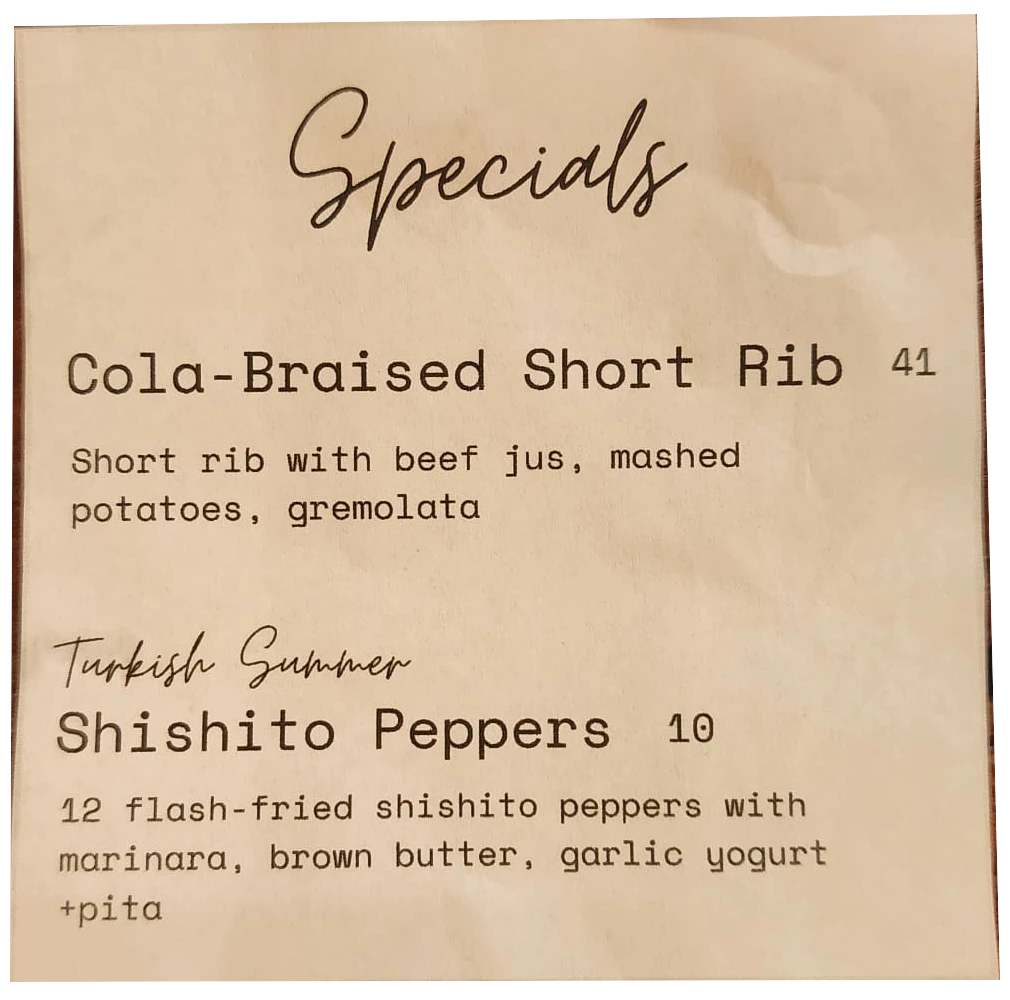 Specials
Cola-Braised Short Rib 41
Short rib with beef jus, mashed
potatoes, gremolata
Turkish Summer
Shishito Peppers 10
12 flash-fried shishito peppers with
marinara, brown butter, garlic yogurt
+pita